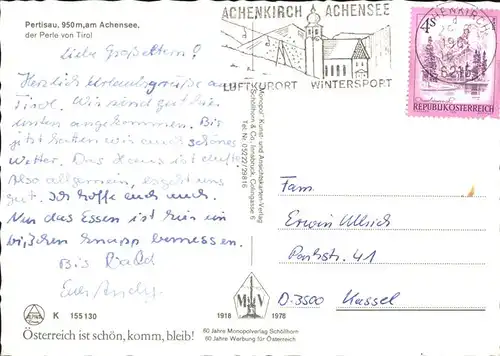 Pertisau, 950m, am Achensee,
der Perle von Tirol
ACHENKIRCH ACHENSEE
LUFTKURORT WINTERSPORT
ACHENKIRCH
6215
4 S
REPUBLIK ÖSTERREICH
Liebe Großeltern!
Herzlich Urlaubsgrüße aus
Tirol. Wir sind gut hier
unten angekommen. Bis
jetzt hatten wir auch schönes
Wetter. Das Haus ist
Also allgemein, es geht uns
gut. Ich hoffe euch auch.
Nur das Essen ist hier ein
bißchen knapp bemessen.
Bis Bald
Euer Andy
"Monopol" Kunst- und Ansichtskarten-Verlag
Schöllhorn & Co., Innsbruck, Colingasse 6
Tel. Nr. 05222/29816
Fam.
Erwin Ullrich
Parkstr. 41
D-3500 Kassel
K 155130
Österreich ist schön, komm, bleib!
1918 MV 1978
60 Jahre Monopolverlag Schöllhorn
60 Jahre Werbung für Österreich